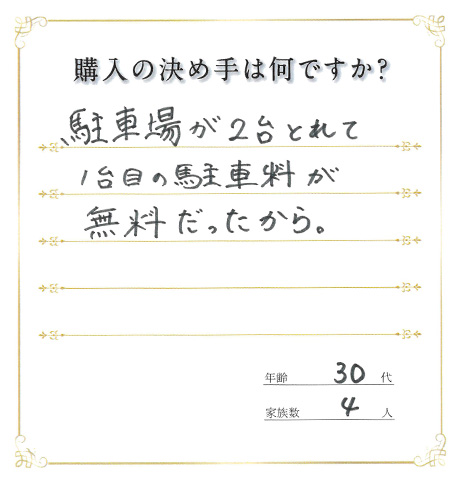 購入の決め手は何ですか?
駐車場が2台とれて
1台目の駐車料が
無料だったから。
年齢 30 代
家族数 4 人